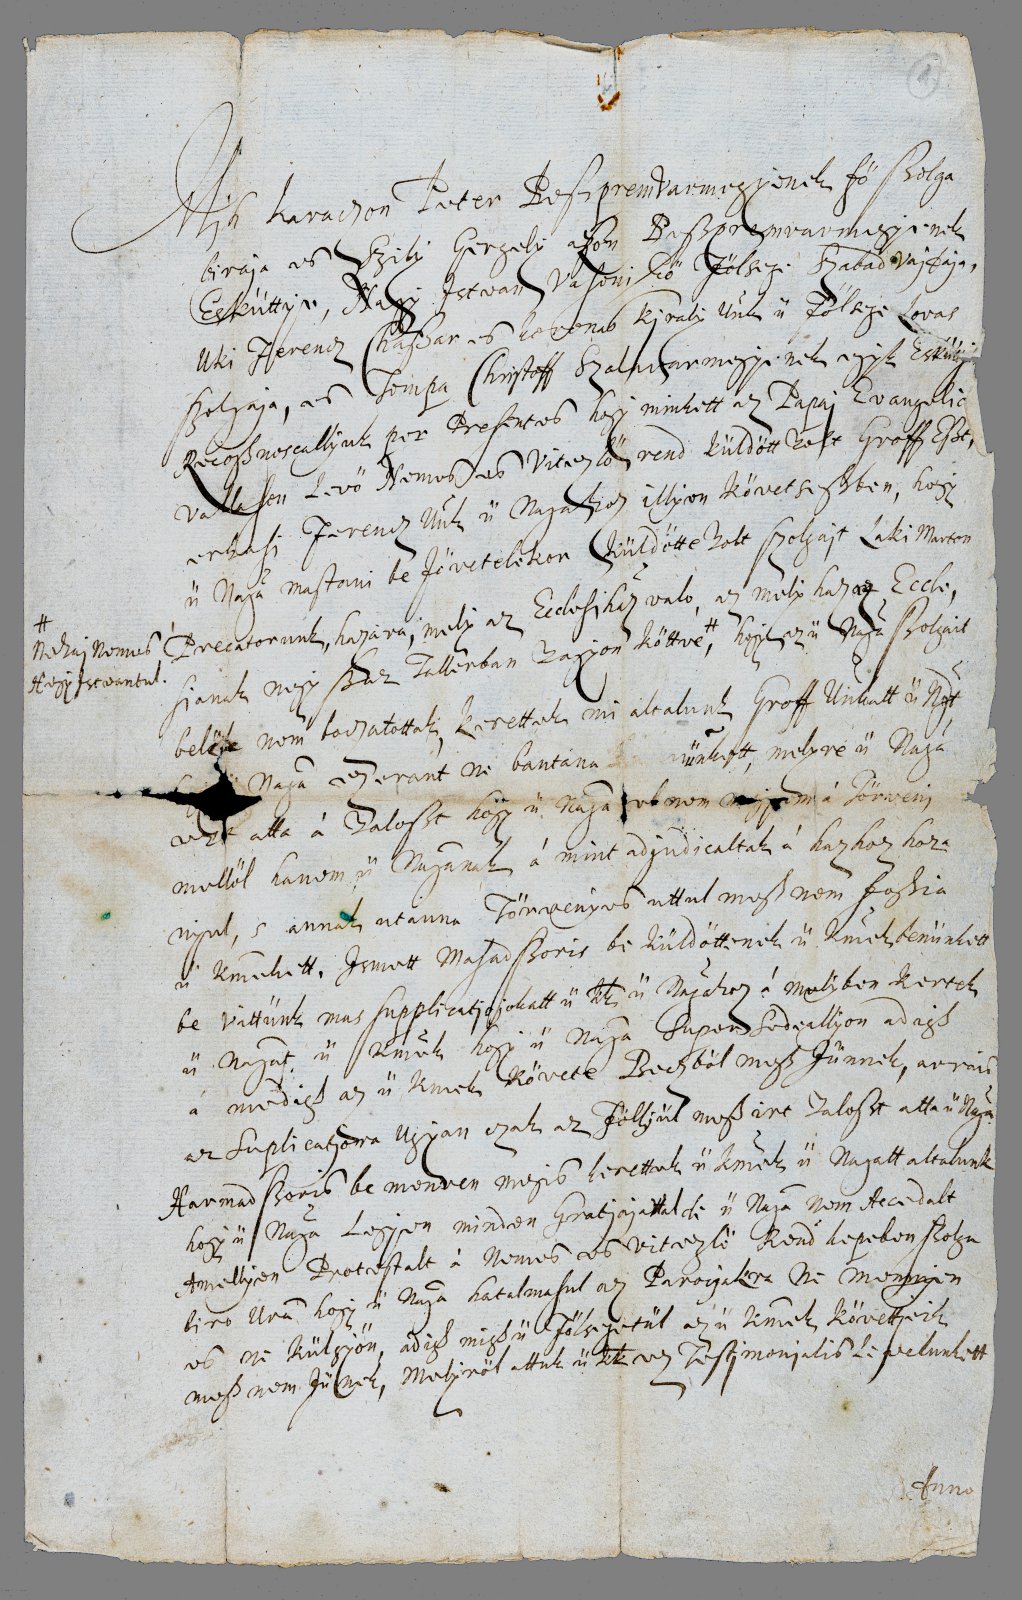 1
Mÿ Karaczon Peter Beszpremvarmegyenek fö szolga
biraja es Szily Gergely azon Beszpremvarmegyenek
Esküttye, Nagy Istvan Vasoni kö fölsege Szabad Vajdaja,
Uki Ferencz Chaszar es koronas kiraly Unk ü Fölsege Lovas
szolgaja, es Tompa Christoff Szaladvarmegyenek egyk Eskütje
Recognoscallyuk per Presentes hogy minkett az Papaj Evangelic
vallason Levö Nemes es Vitezlö rend küldött volt Groff Eszt,
erhasi Ferencz Unk ü Nagahoz illyen követsegben, hogy
ü Naga mastani be Jövetelekor küldötte volt szolgajt Laki Marton
Precatorunk, hazara, mely az Ecclesihaz valo, az mely haz az Eccle,
sianak negy szaz Tallerban vagyon köttve, # hogy az ü Naga szolgait
# Nehaj Nemes
Nagy Istvantul.
beléje nem boczatottak, kerettek mi altalunk Groff Unkatt ü Ngt,
Naga ezerant ne bantana ünkett, melyre ü Naga
ezt atta á valoszt hogy ü Naga el nem megyen á Törveny
mellöl hanem ü Naganak á mint adjudicaltak á hazhoz hoza
nyul, s annak utanna Törvenyes uttul megh nem foghia
ü kmekett. Ismett Masadszoris be küldöttenek ü kmek benünkett
be vittünk mas supplicatiojokatt ü kk ü Nagahoz á melyben kertek
ü Nagat ü kmek hogy ü Naga Supersedeallyon adigh
á medigh az ü kmek követe Beczböl megh Jünnek, arrais
az Suplicatiora Ugyan czak az fölljül megh irt valoszt atta ü Naga
Harmadszoris be menven megis kerettek ü kmek ü Nagatt altalunk
hogy ü Naga Legyen minden Gratiajattal de ü Naga nem Accedalt
Amellyen Protestalt á Nemes es vitezlö Rend kepeben szolga
biro Uram hogy ü Naga hatalmasul az Parogiakra Ne mennyen
es ne külgyön, adigh migh ü fölsegetül az ü kmek követtyeik
megh nem Jünek, Melyröl attuk ü kk ez Testimonialis Levelunkett
Anno